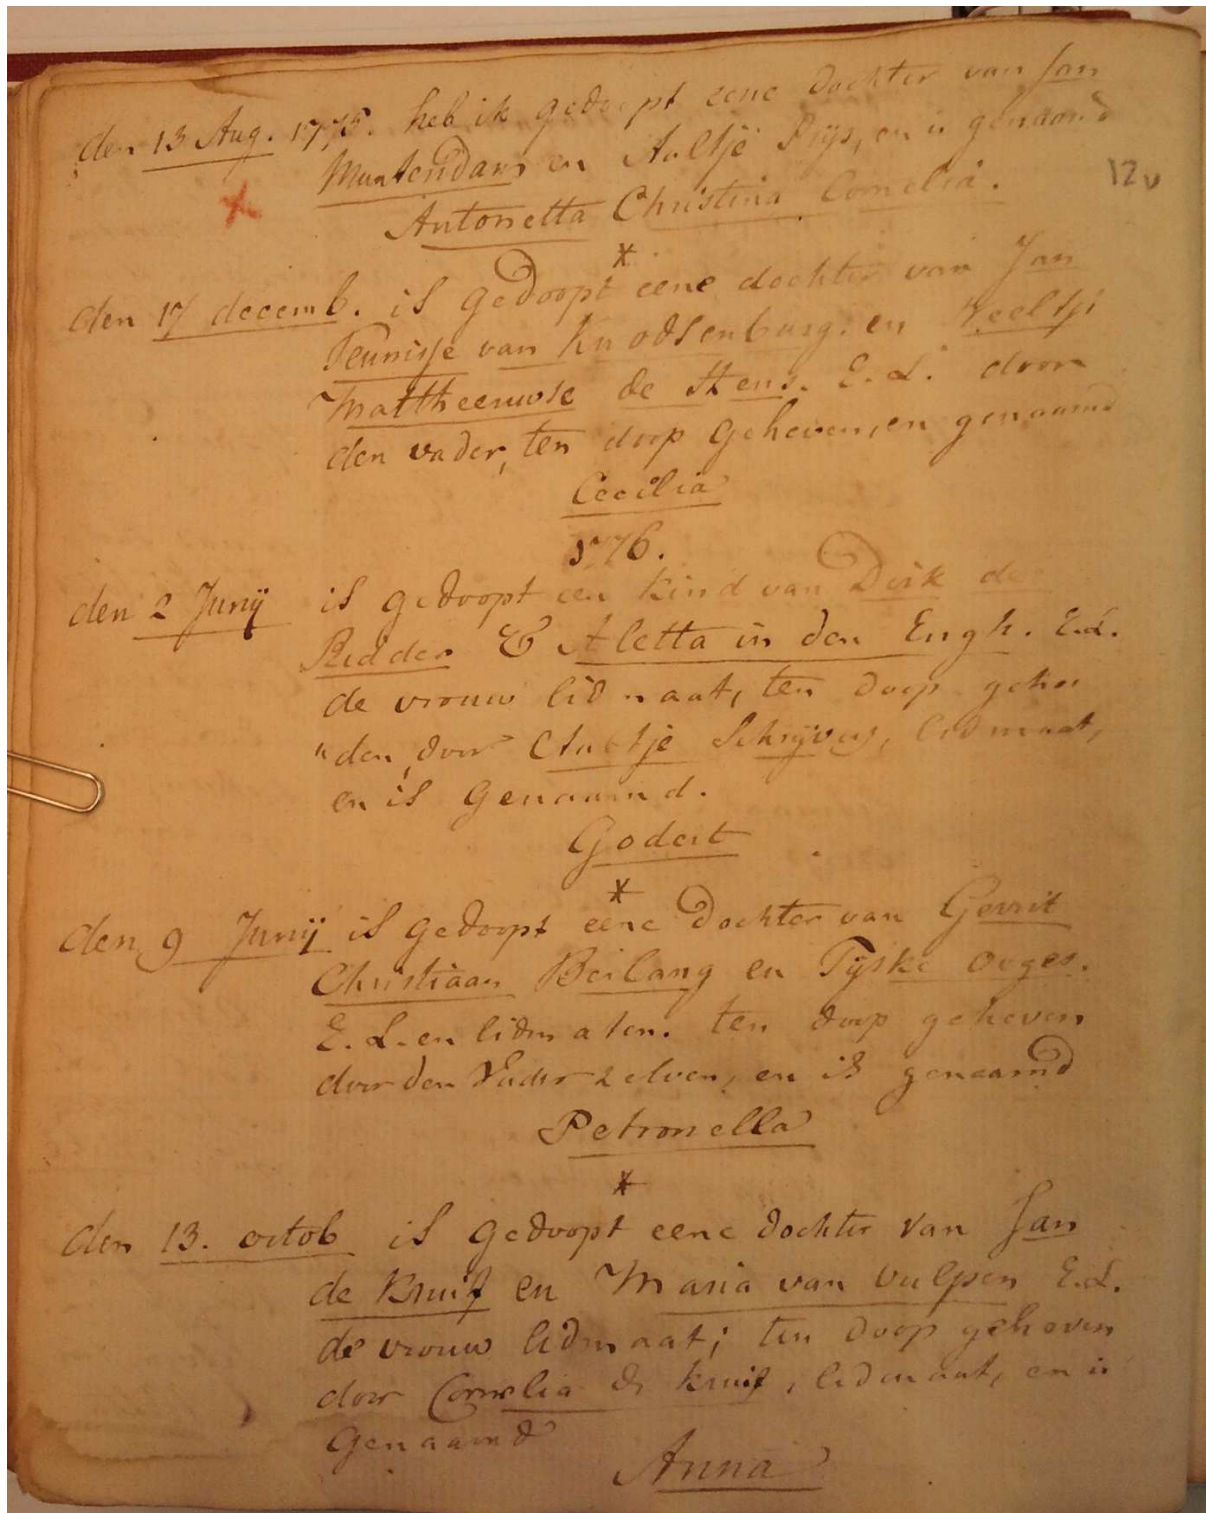 den 13 Aug. 1775. heb ik gedoopt eene dochter van Jan
Muntendam en Aaltje Rijs, en is genaamd
12v
Antonetta Christina Cornelia.
*
den 17 decemb. is gedoopt eene dochter van Jan
Teunisse van Knodsenburg. en Neeltje
Mattheeuwse de E. L. door
den vader, ten doop geheven, en genaamd
Cecilia
1776.
den 2 Junij is gedoopt een kind van Dirk de
Ridder & Aletta in den Engh. E. L.
de vrouw lidmaat, ten doop gehou
"den, door Aaltje Schrijvers, lidmaat,
en is genaamd.
Godert
*
den 9 Junij is gedoopt eene dochter van Gerrit
Christiaan Beilang en Tijske Orges.
E. L. en lidmaten. ten doop geheven
door den Vader zelven, en is genaamd
Petronella
*
den 13. octob is gedoopt eene dochter van Jan
de Kruif en Maria van Vulpen E. L.
de vrouw lidmaat; ten doop geheven
door Cornelia de Kruif, lidmaat, en is
Genaamd
Anna